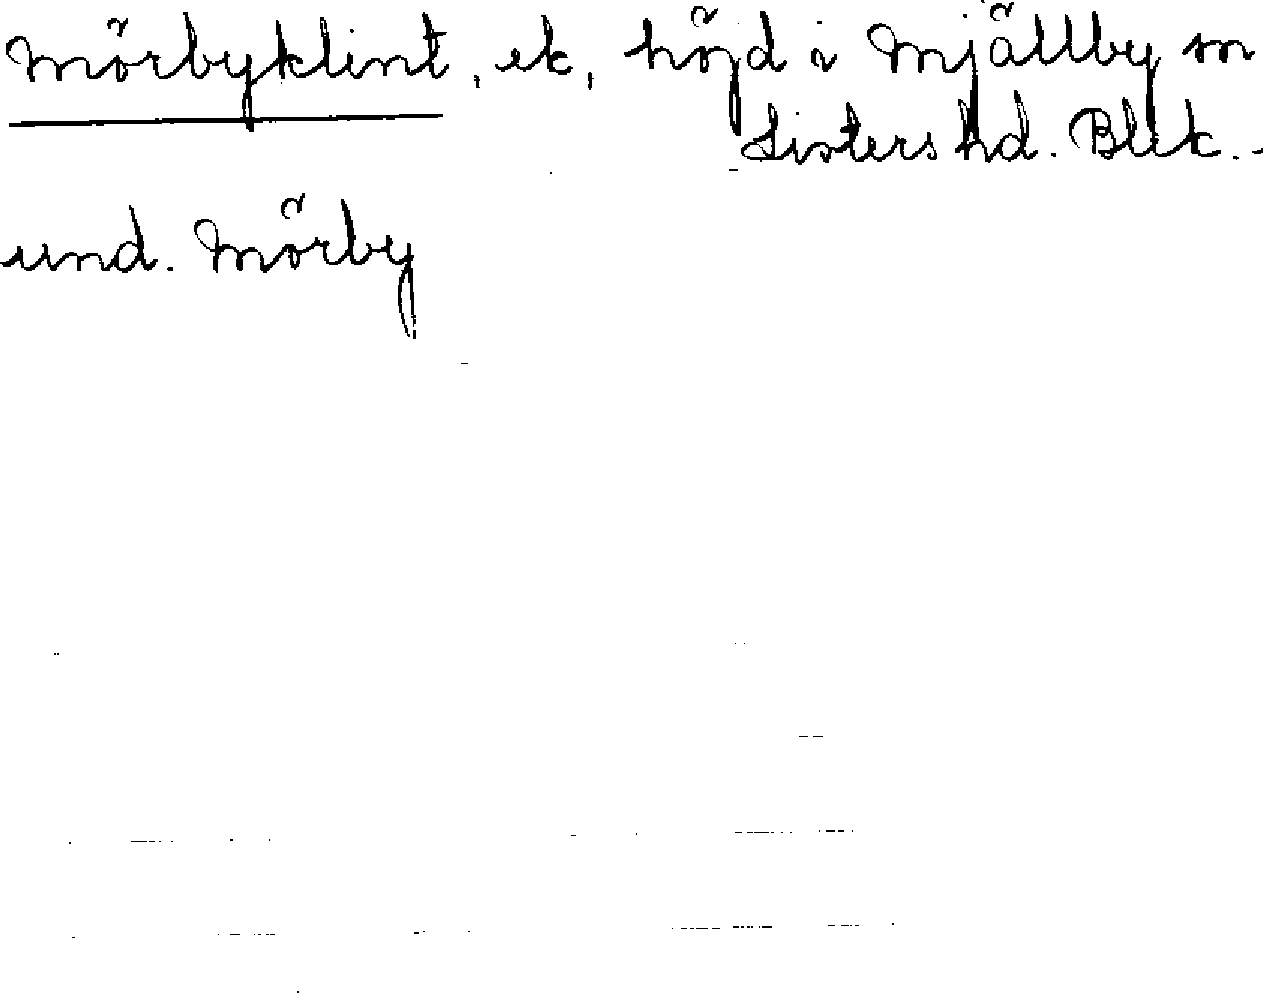 Mörbyklint, ek, höjd i Mjällby sn
Listers hd. Blek. -
und. Mörby